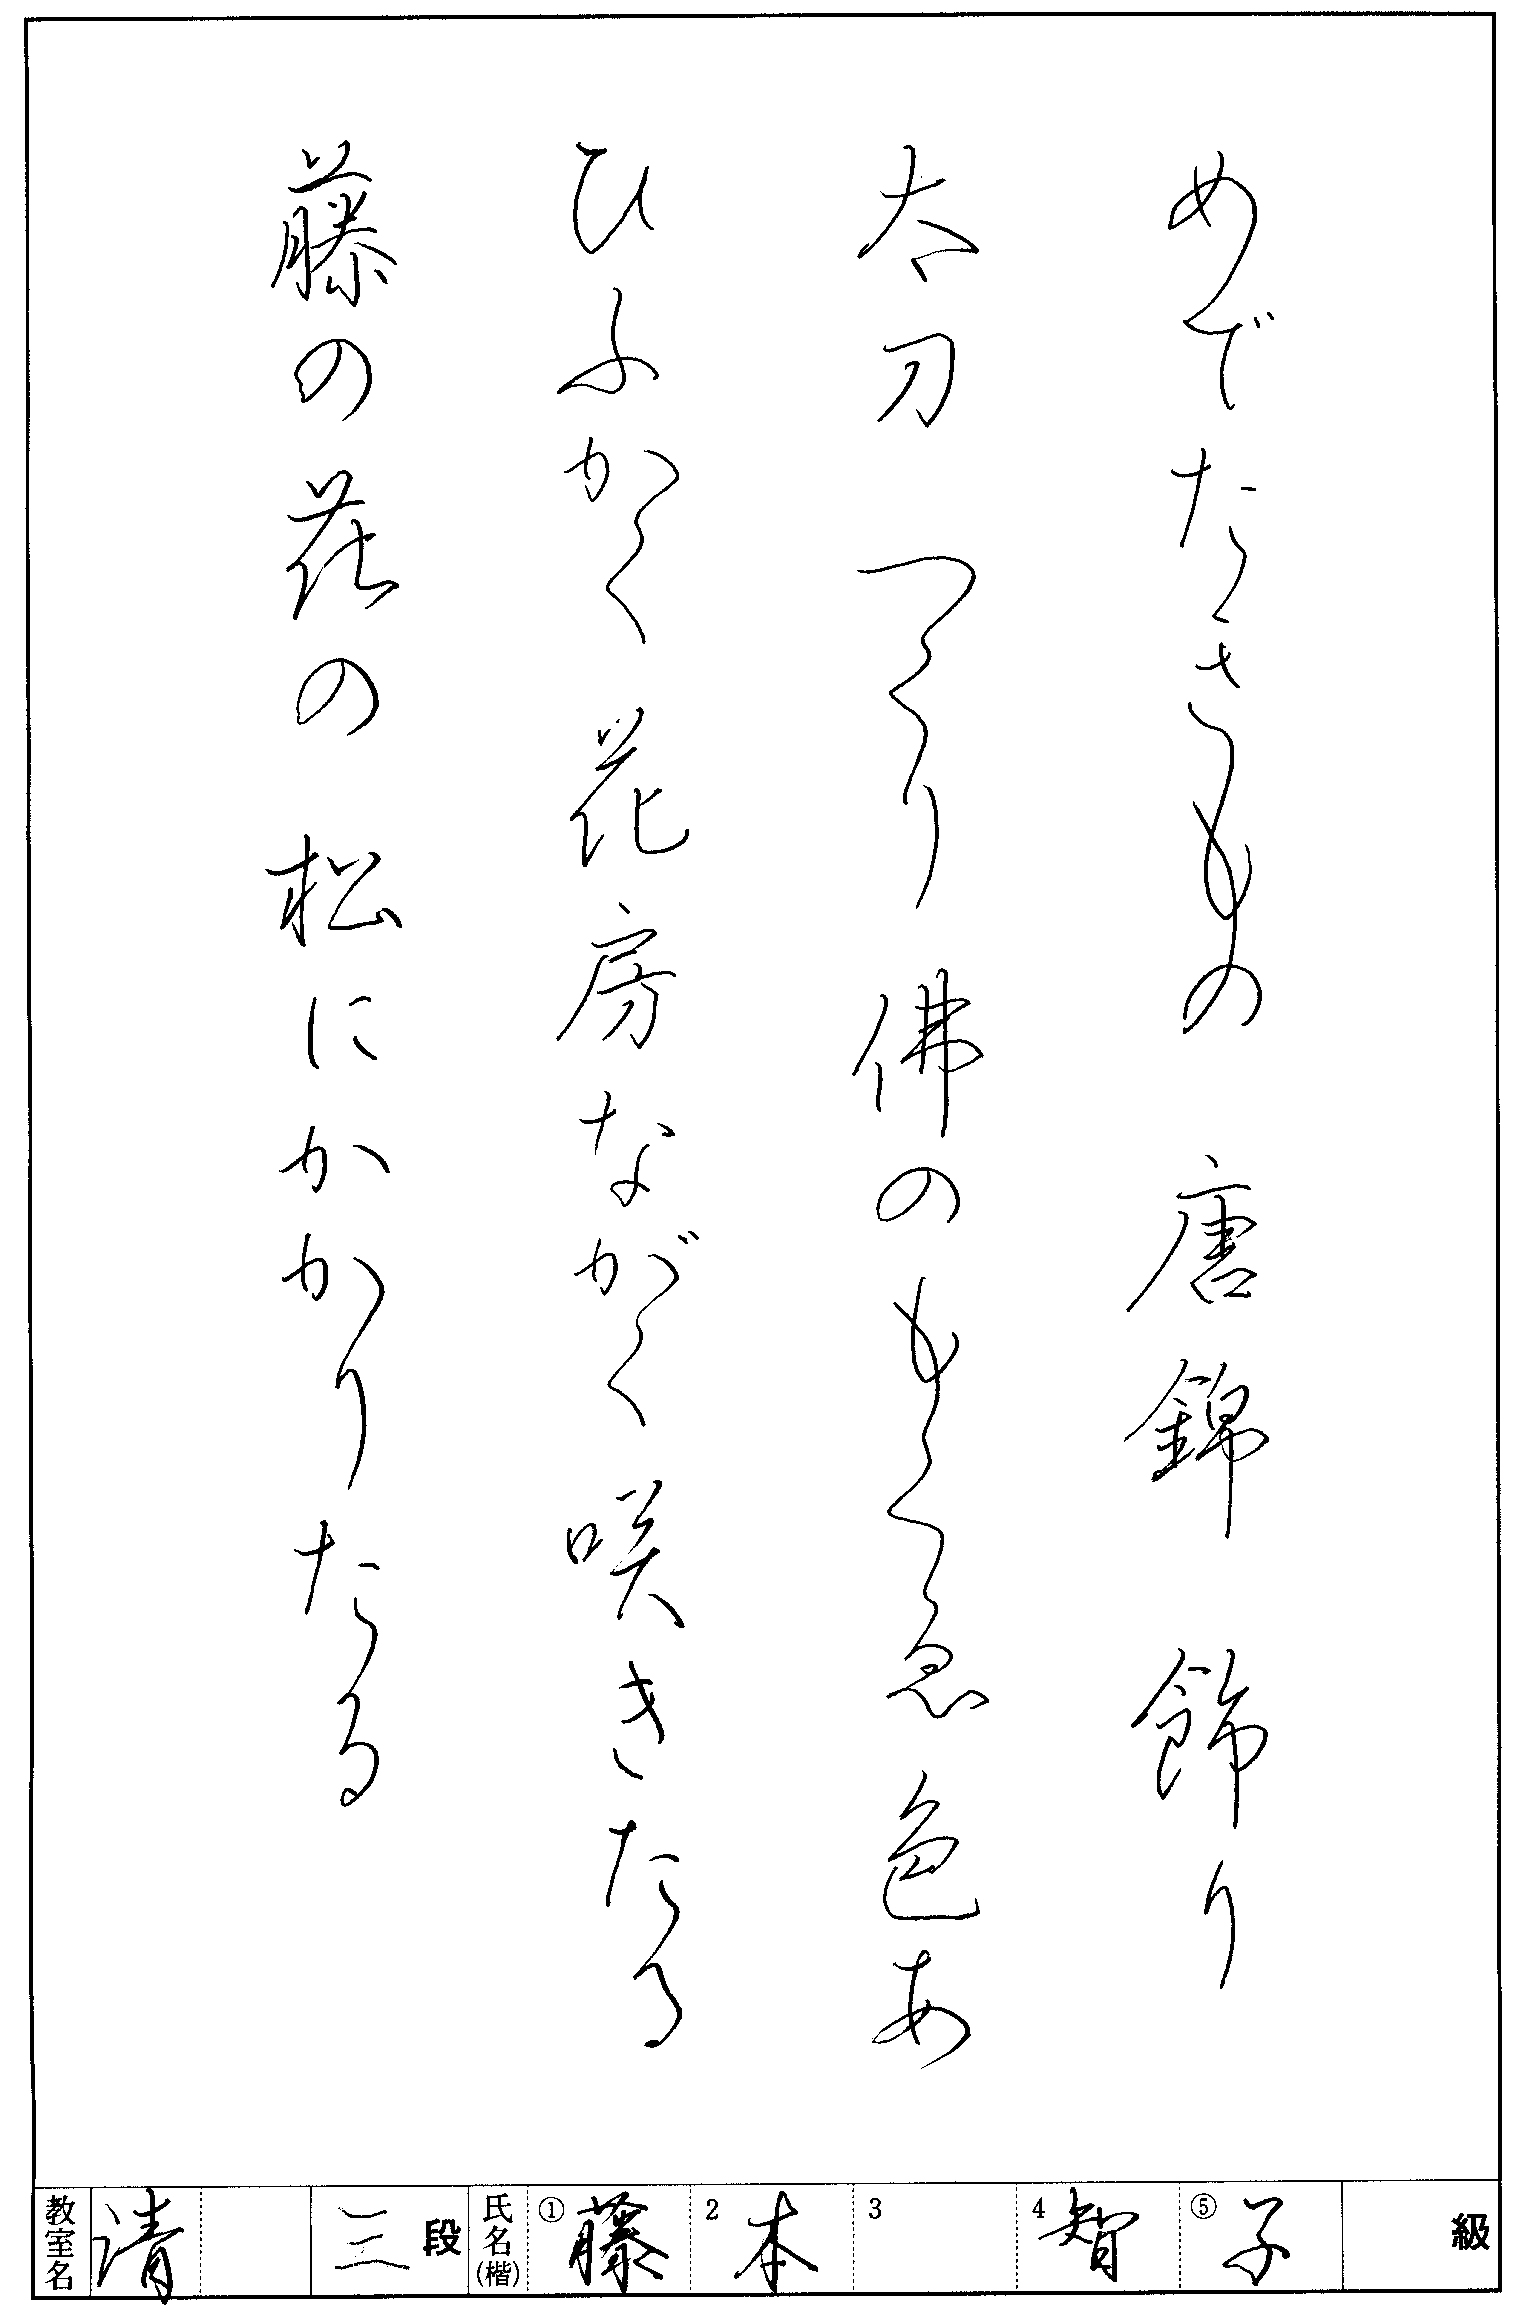 めでたきもの 唐錦 飾り
太刀 つくり佛のもくゑ色あ
ひふかく花房ながく咲きたる
藤の花の 松にかかりたる
教室名 清 三段 氏名(楷) ①藤 2本 3 4智 ⑤子 級